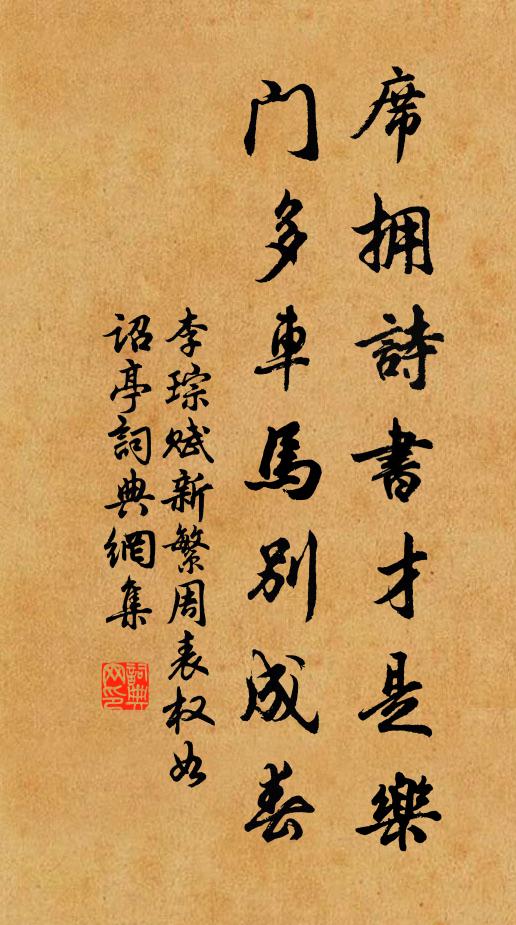 席拥詩書才是樂
门多車馬别成春
李琮赋新繁周表权如
诏亭詞典網集
詞典网印